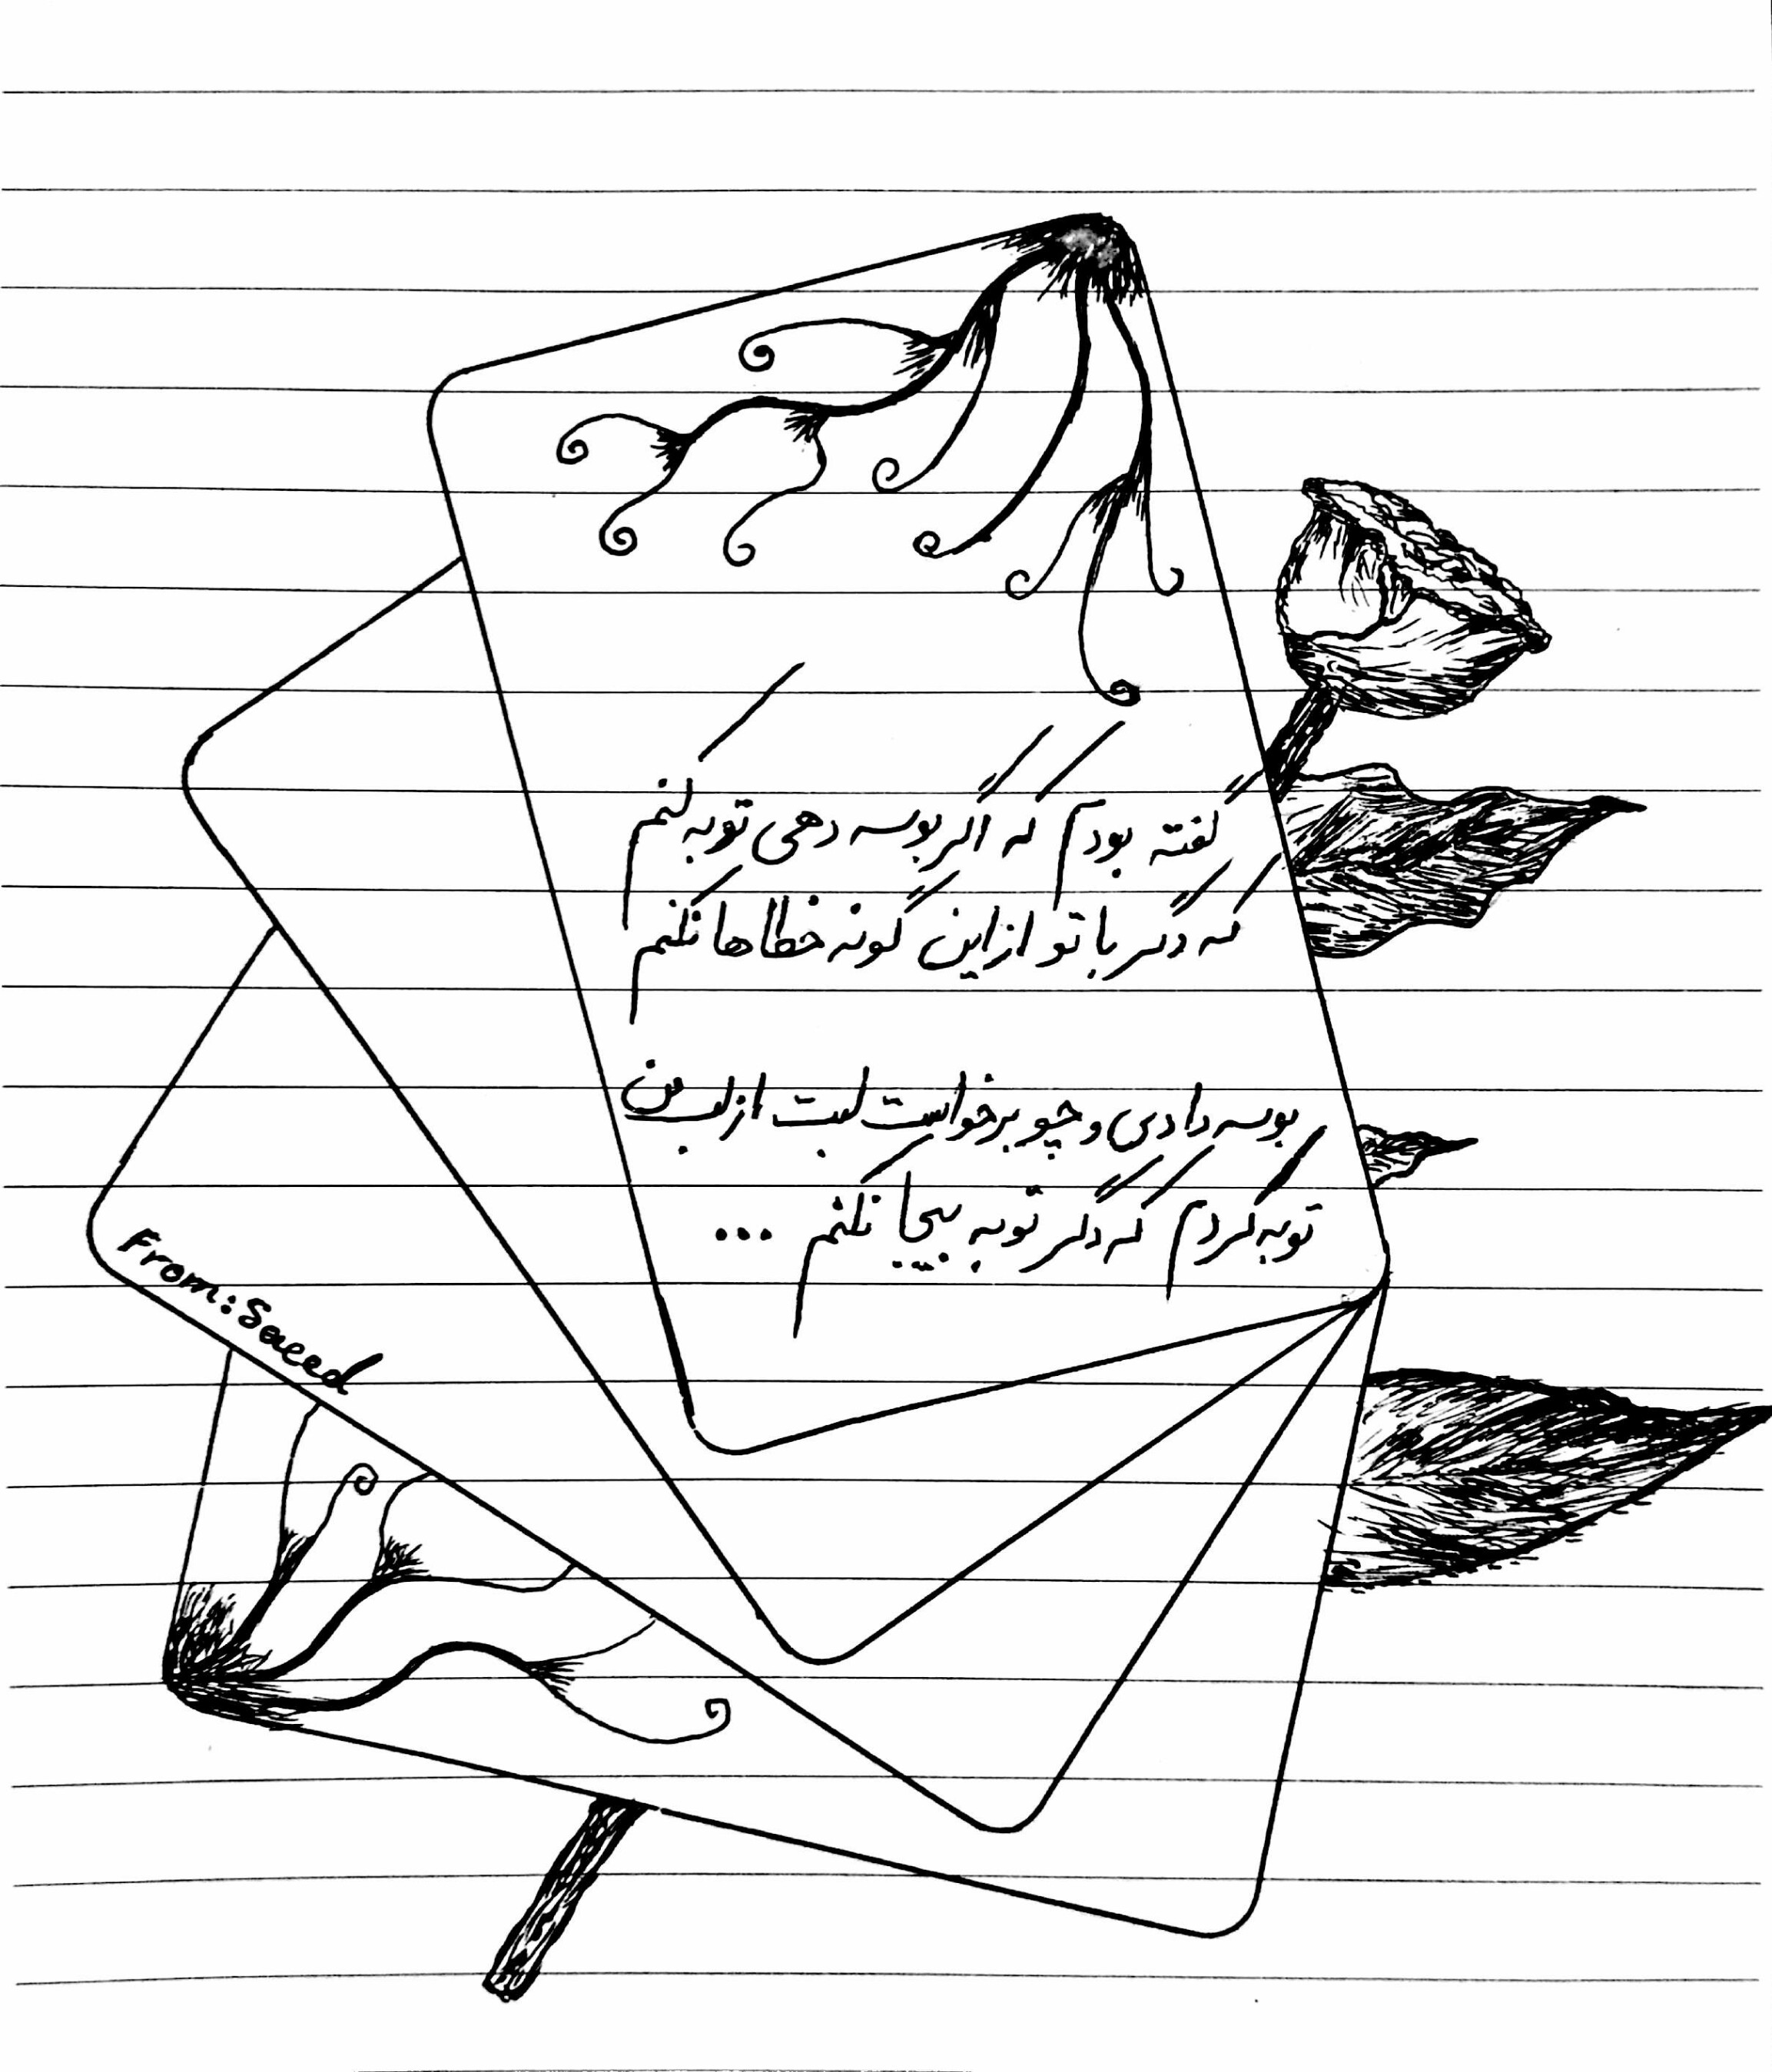 گفته بودم که اگر بوسه دهی توبه کنم
که دگر با تو از این گونه خطاها نکنم
بوسه دادی و چو برخواست لبت از لب من
توبه کردم که دگر توبه بیجا نکنم ...
From: Saeed